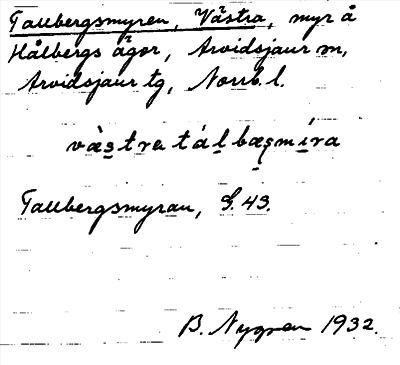 Tallbergsmyren, Västra, myr å
Hålbergs ägor, Arvidsjaur sn,
Arvidsjaur tg, Norrb. l.
västra tálbæşmíra
Tallbergsmyran, G. 43.
B. Nygren 1932.